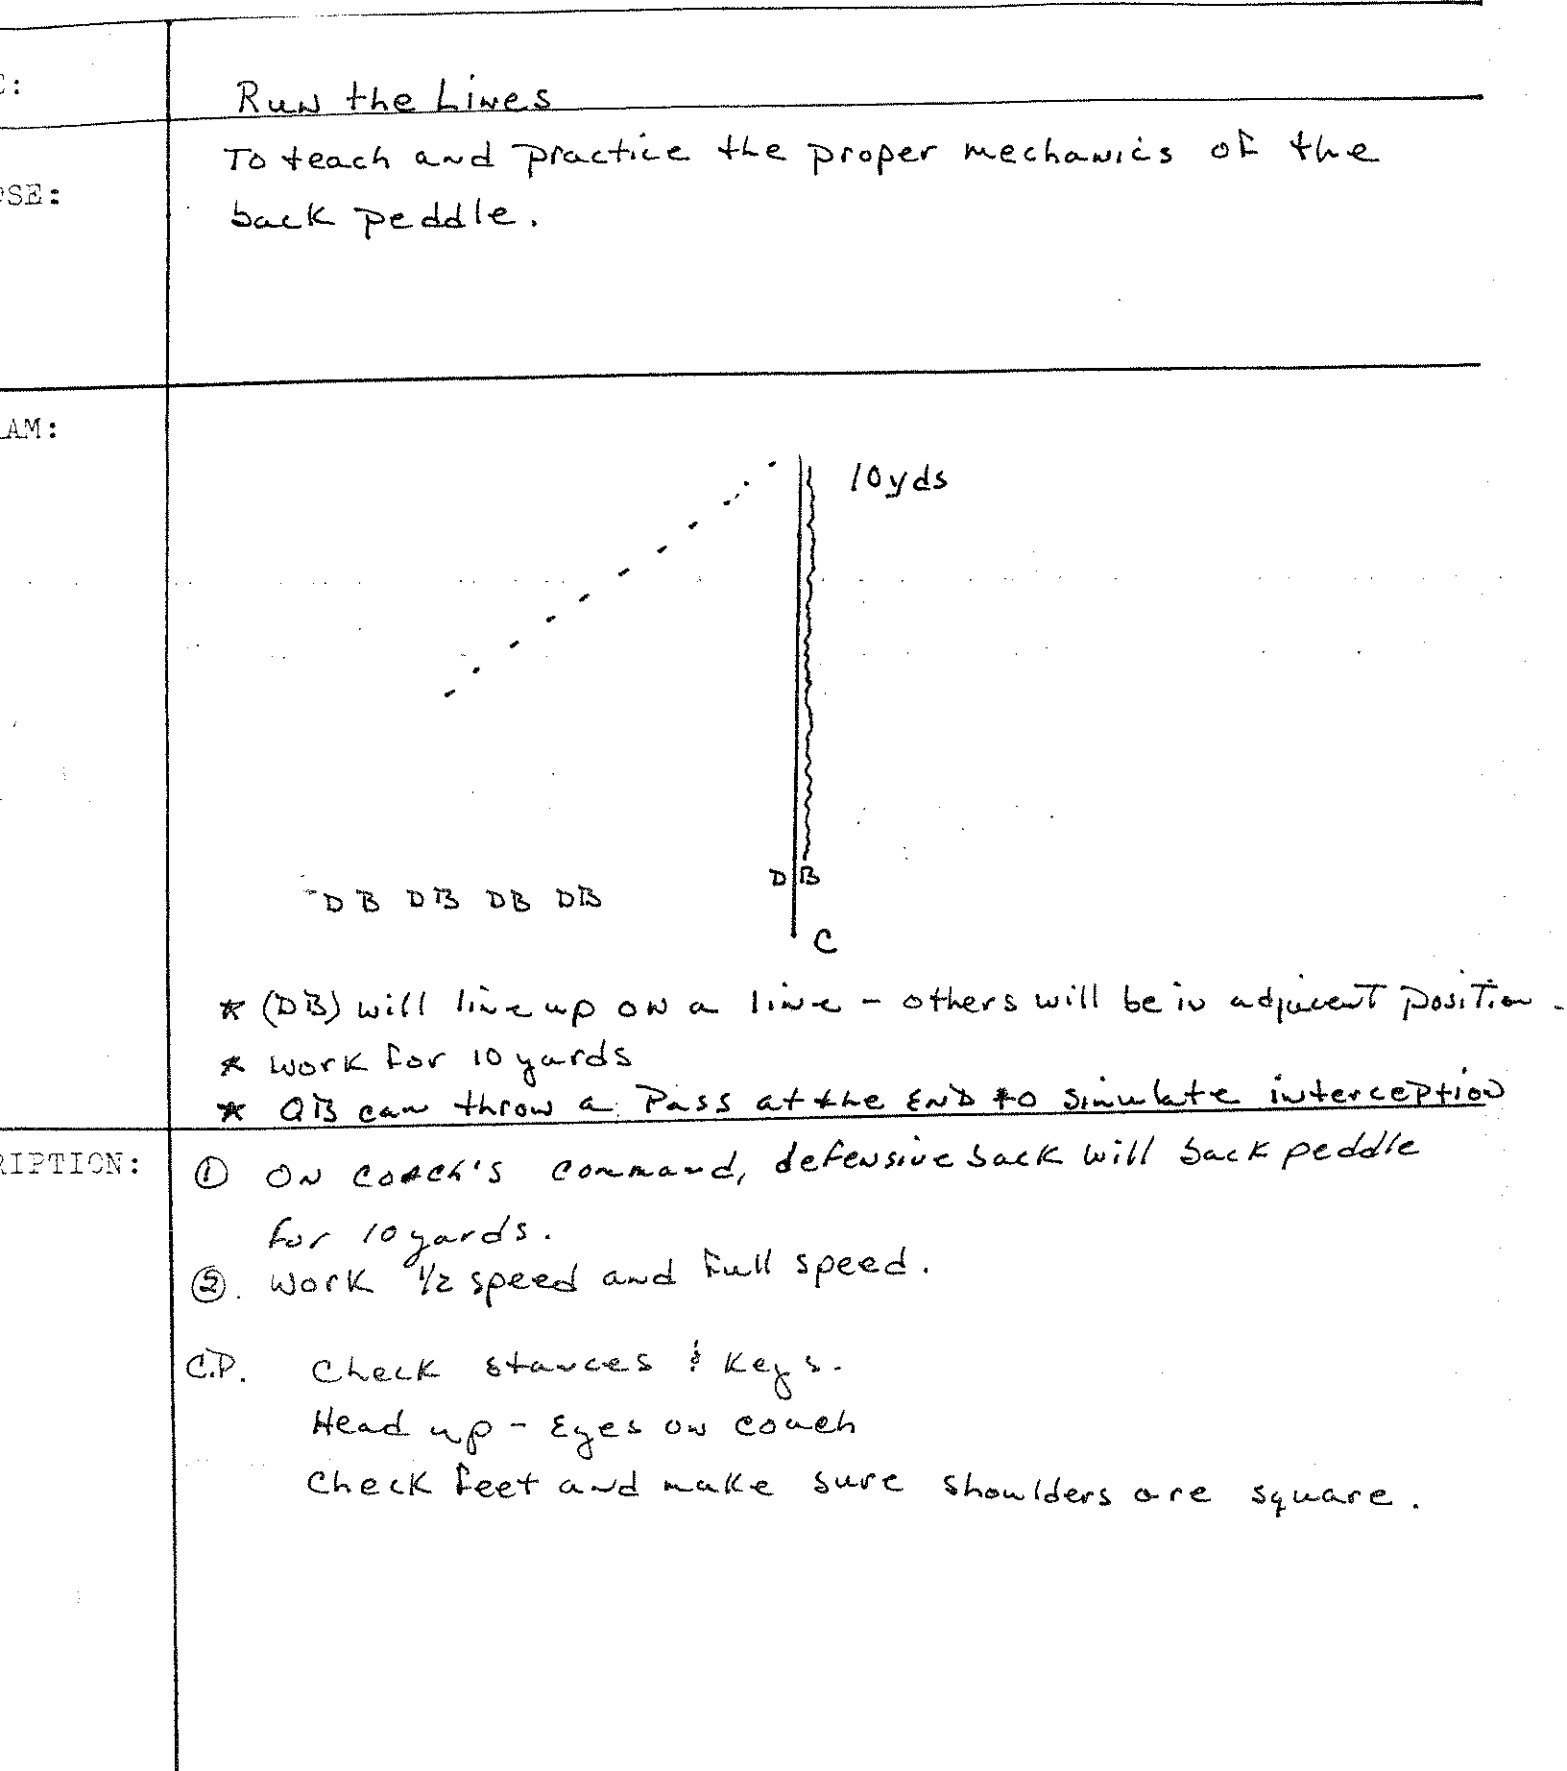 C:
Run the Lines
OSE:
To teach and practice the proper mechanics of the
back peddle.
AM:
10 yds
DB
DB DB DB DB
C
* (DB) will line up on a line - others will be in adjacent position.
* work for 10 yards
* QB can throw a Pass at the END to simulate interception
RIPTION:
① ON coach's command, defensive back will back peddle
for 10 yards.
②. Work 1/2 speed and full speed.
C.P. Check stances & keys.
Head up - Eyes on coach
Check feet and make sure shoulders are square.